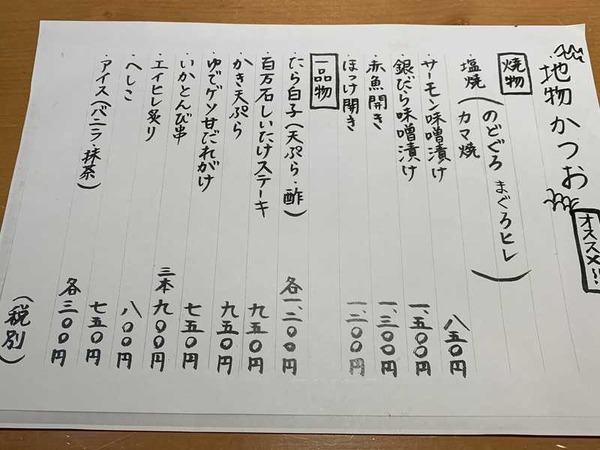 オススメ!!
地物かつお
焼物
塩焼(のどぐろ まぐろヒレ
カマ焼)
・サーモン味噌漬け 八五〇円
・銀だら味噌漬け 一、五〇〇円
・赤魚開き 一、三〇〇円
・ほっけ開き 一、二〇〇円
一品物
・たら白子(天ぷら・酢) 各一、二〇〇円
・百万石しいたけステーキ 九五〇円
・かき天ぷら 九五〇円
・ゆでゲソ甘だれがけ 七五〇円
・いかとんび串 三本九〇〇円
・エイヒレ炙り 八〇〇円
・へしこ 七五〇円
・アイス(バニラ・抹茶) 各三〇〇円
(税別)